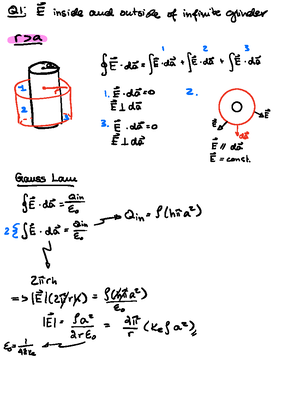 Q1: E⃗ inside and outside of infinite cylinder
r>a
1 2 3
∮E⃗·da⃗ = ∫E⃗·da⃗ + ∫E⃗·da⃗ + ∫E⃗·da⃗
1. E⃗·da⃗=0
E⃗⊥da⃗
2.
3. E⃗·da⃗=0
E⃗⊥da⃗
1
r
2
3
E⃗
E⃗
da⃗
E⃗ // da⃗
E⃗ = const.
Gauss Law
∮E⃗·da⃗ = Qin/ε₀
2 ∫E⃗·da⃗ = Qin/ε₀ → Qin = ρ(hπa²)
2πrh
=> |E⃗|(2πrh) = ρ(hπa²)/ε₀
|E⃗| = ρa²/2rε₀ = 2π/r (kₑρa²)
ε₀=1/4πkₑ